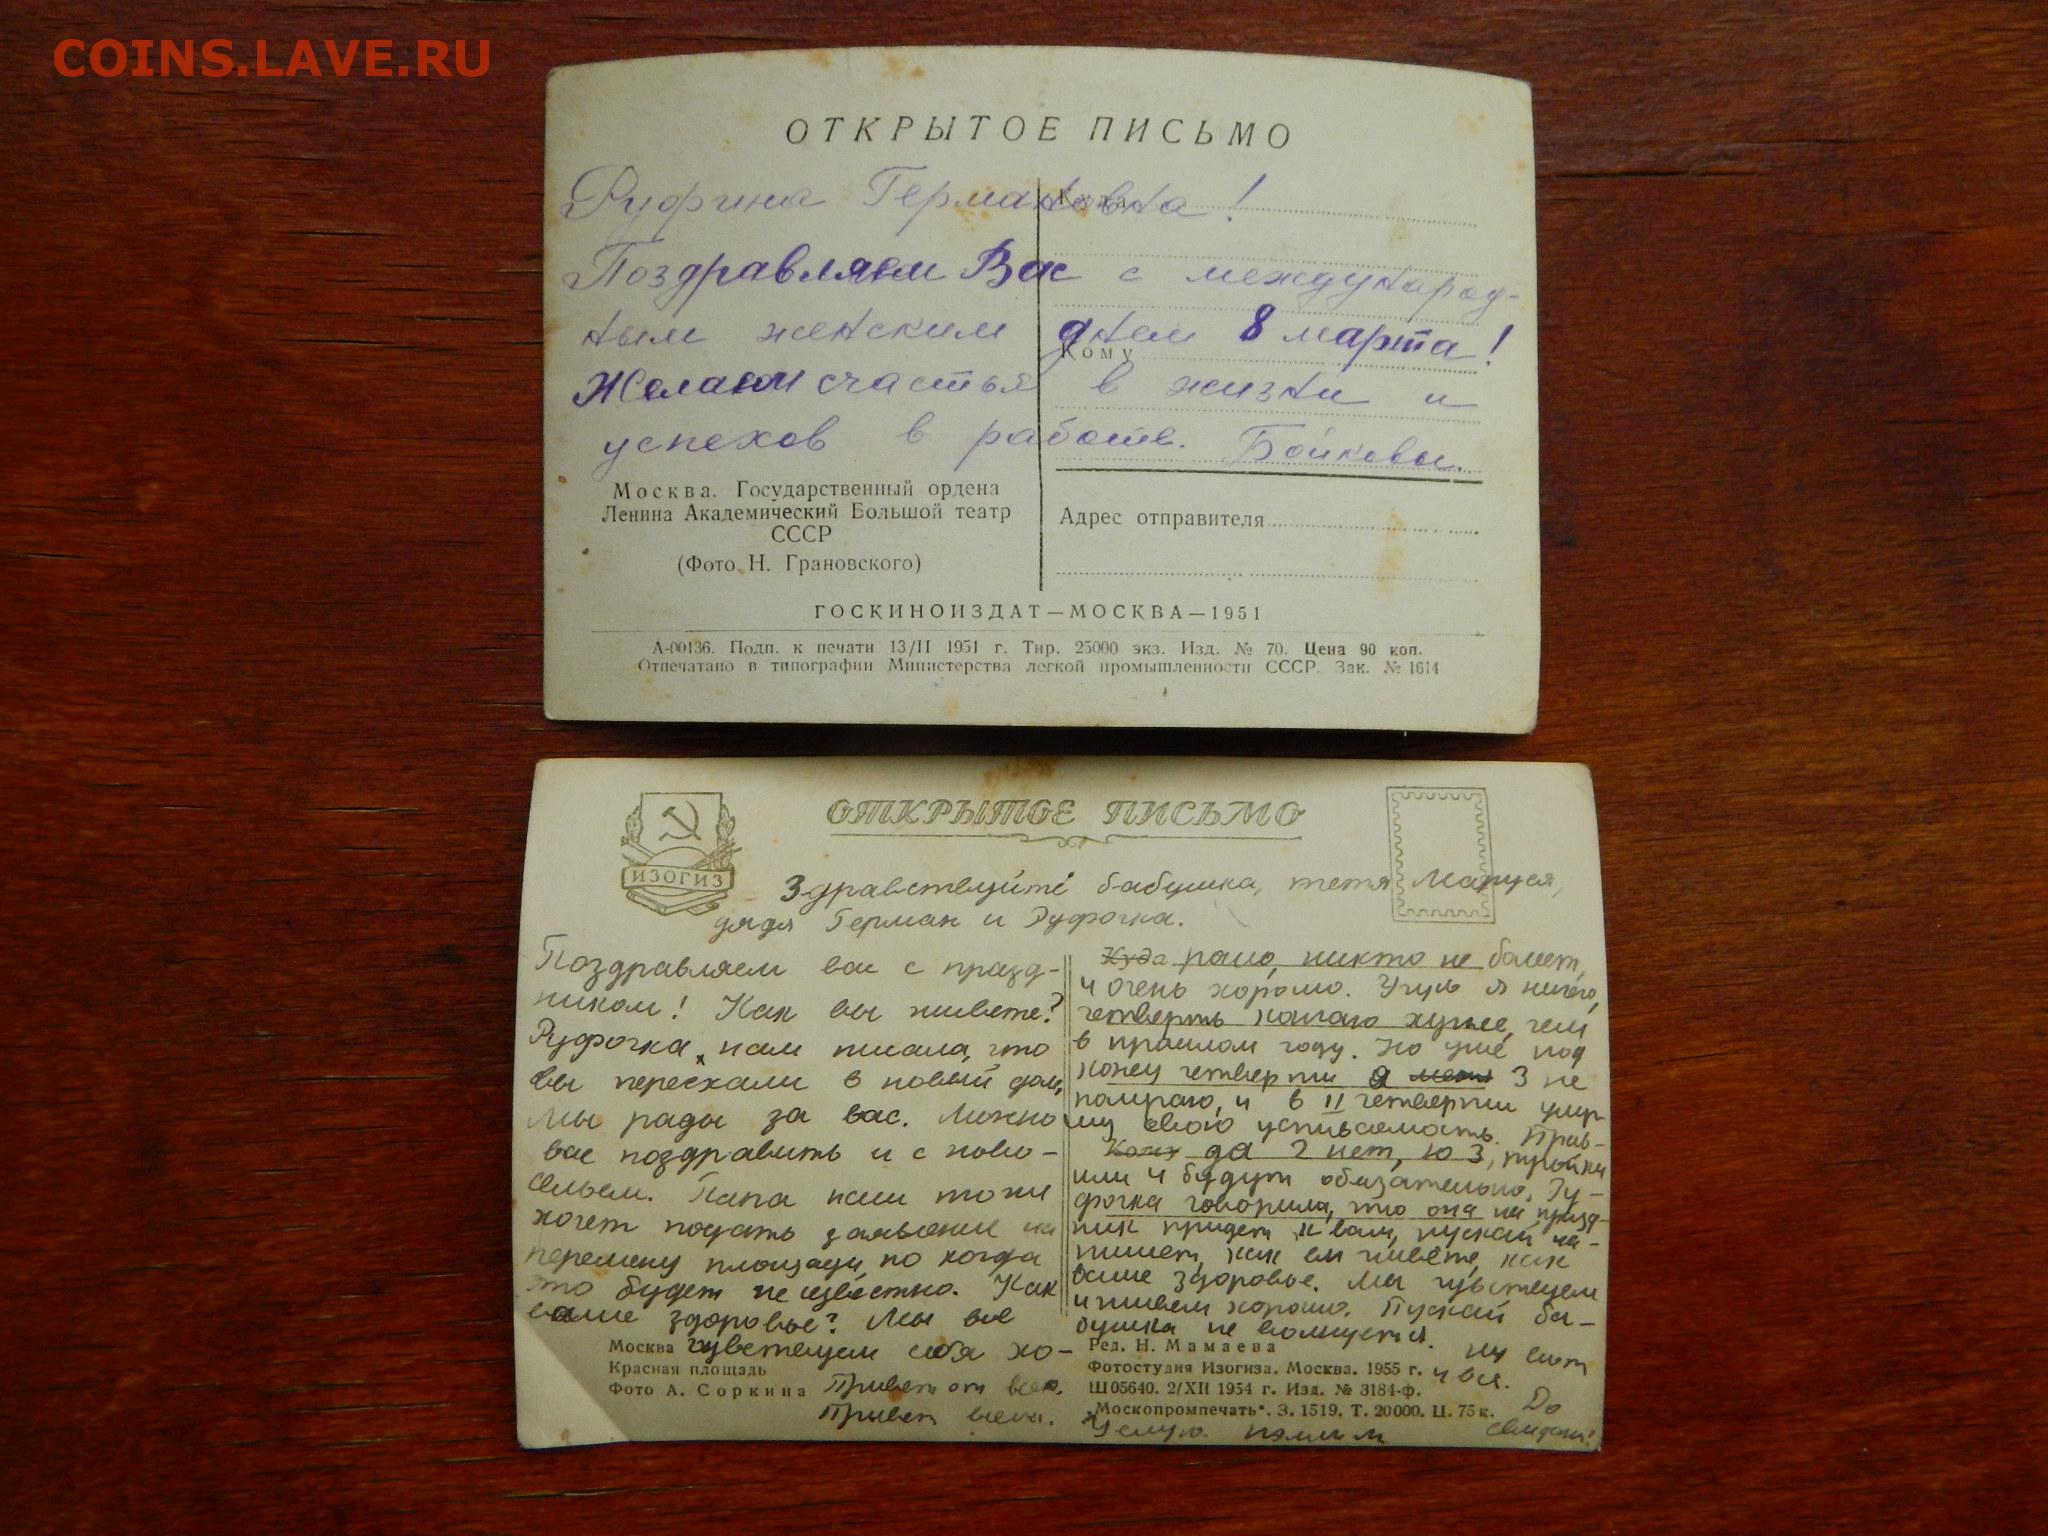 COINS.LAVE.RU
ОТКРЫТОЕ ПИСЬМО
Руфина Германовна!
Куда
Поздравляем Вас с международ-
ным женским днем 8 марта!
Кому
Желаем счастья в жизни и
успехов в работе. Бойковы.
Москва. Государственный ордена
Ленина Академический Большой театр
СССР
(Фото Н. Грановского)
Адрес отправителя
ГОСКИНОИЗДАТ—МОСКВА—1951
А-00136. Подп. к печати 13/II 1951 г. Тир. 25000 экз. Изд. № 70. Цена 90 коп.
Отпечатано в типографии Министерства легкой промышленности СССР. Зак. № 1614
ОТКРЫТОЕ ПИСЬМО
ИЗОГИЗ
Здравствуйте бабушка, тетя Маруся,
дядя Герман и Руфочка.
Поздравляем вас с празд-
ником! Как вы живете?
Руфочка нам писала, что
вы переехали в новый дом,
Мы рады за вас. Можно
вас поздравить и с ново-
сельем. Папа наш тоже
хочет подать заявление на
перемену площади, но когда
это будет не известно. Как
ваше здоровье? Мы все
чувствуем себя хо-
Москва
Красная площадь
Фото А. Соркина
Привет от всех.
Привет
Куда
рошо, никто не болеет,
и очень хорошо. Учусь я ничего,
четверть хуже, чем
в прошлом году. Но уже под
конец четверти я 3 не
и в II четверти
свою успеваемость. Прав-
Кому
да 2 нет, 3, тройки
или 4 будут обязательно. Ру-
фочка говорила, что она на празд-
ник придет к вам, пускай на-
пишет, как вы живете, как
ваше здоровье. Мы чувствуем
и живем хорошо. Пускай ба-
бушка не волнуется.
Ред. Н. Мамаева
Фотостудия Изогиза. Москва. 1955 г.
Ш05640. 2/XII 1954 г. Изд. № 3184-ф.
„Москопромпечать". З. 1519. Т. 20000. Ц. 75 к.
Ну вот
и все.
До
свидания!
Целую